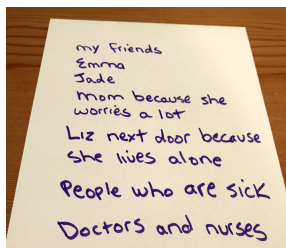 my friends
Emma
Jade
mom because she
worries a lot
Liz next door because
she lives alone
People who are sick
Doctors and nurses